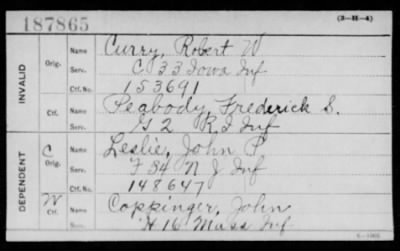 187865
(3-H-4)
INVALID
Orig.
Name Curry, Robert W
Serv. C 33 Iowa Inf
Ctf. No. 153691
Ctf.
Name Peabody, Frederick S.
Serv. G 2 R I Inf
DEPENDENT
C
Orig.
Name Leslie, John P
Serv. F 34 N J Inf
Ctf. No. 148647
W
Ctf.
Name Coppinger, John
Serv. H 16 Mass Inf